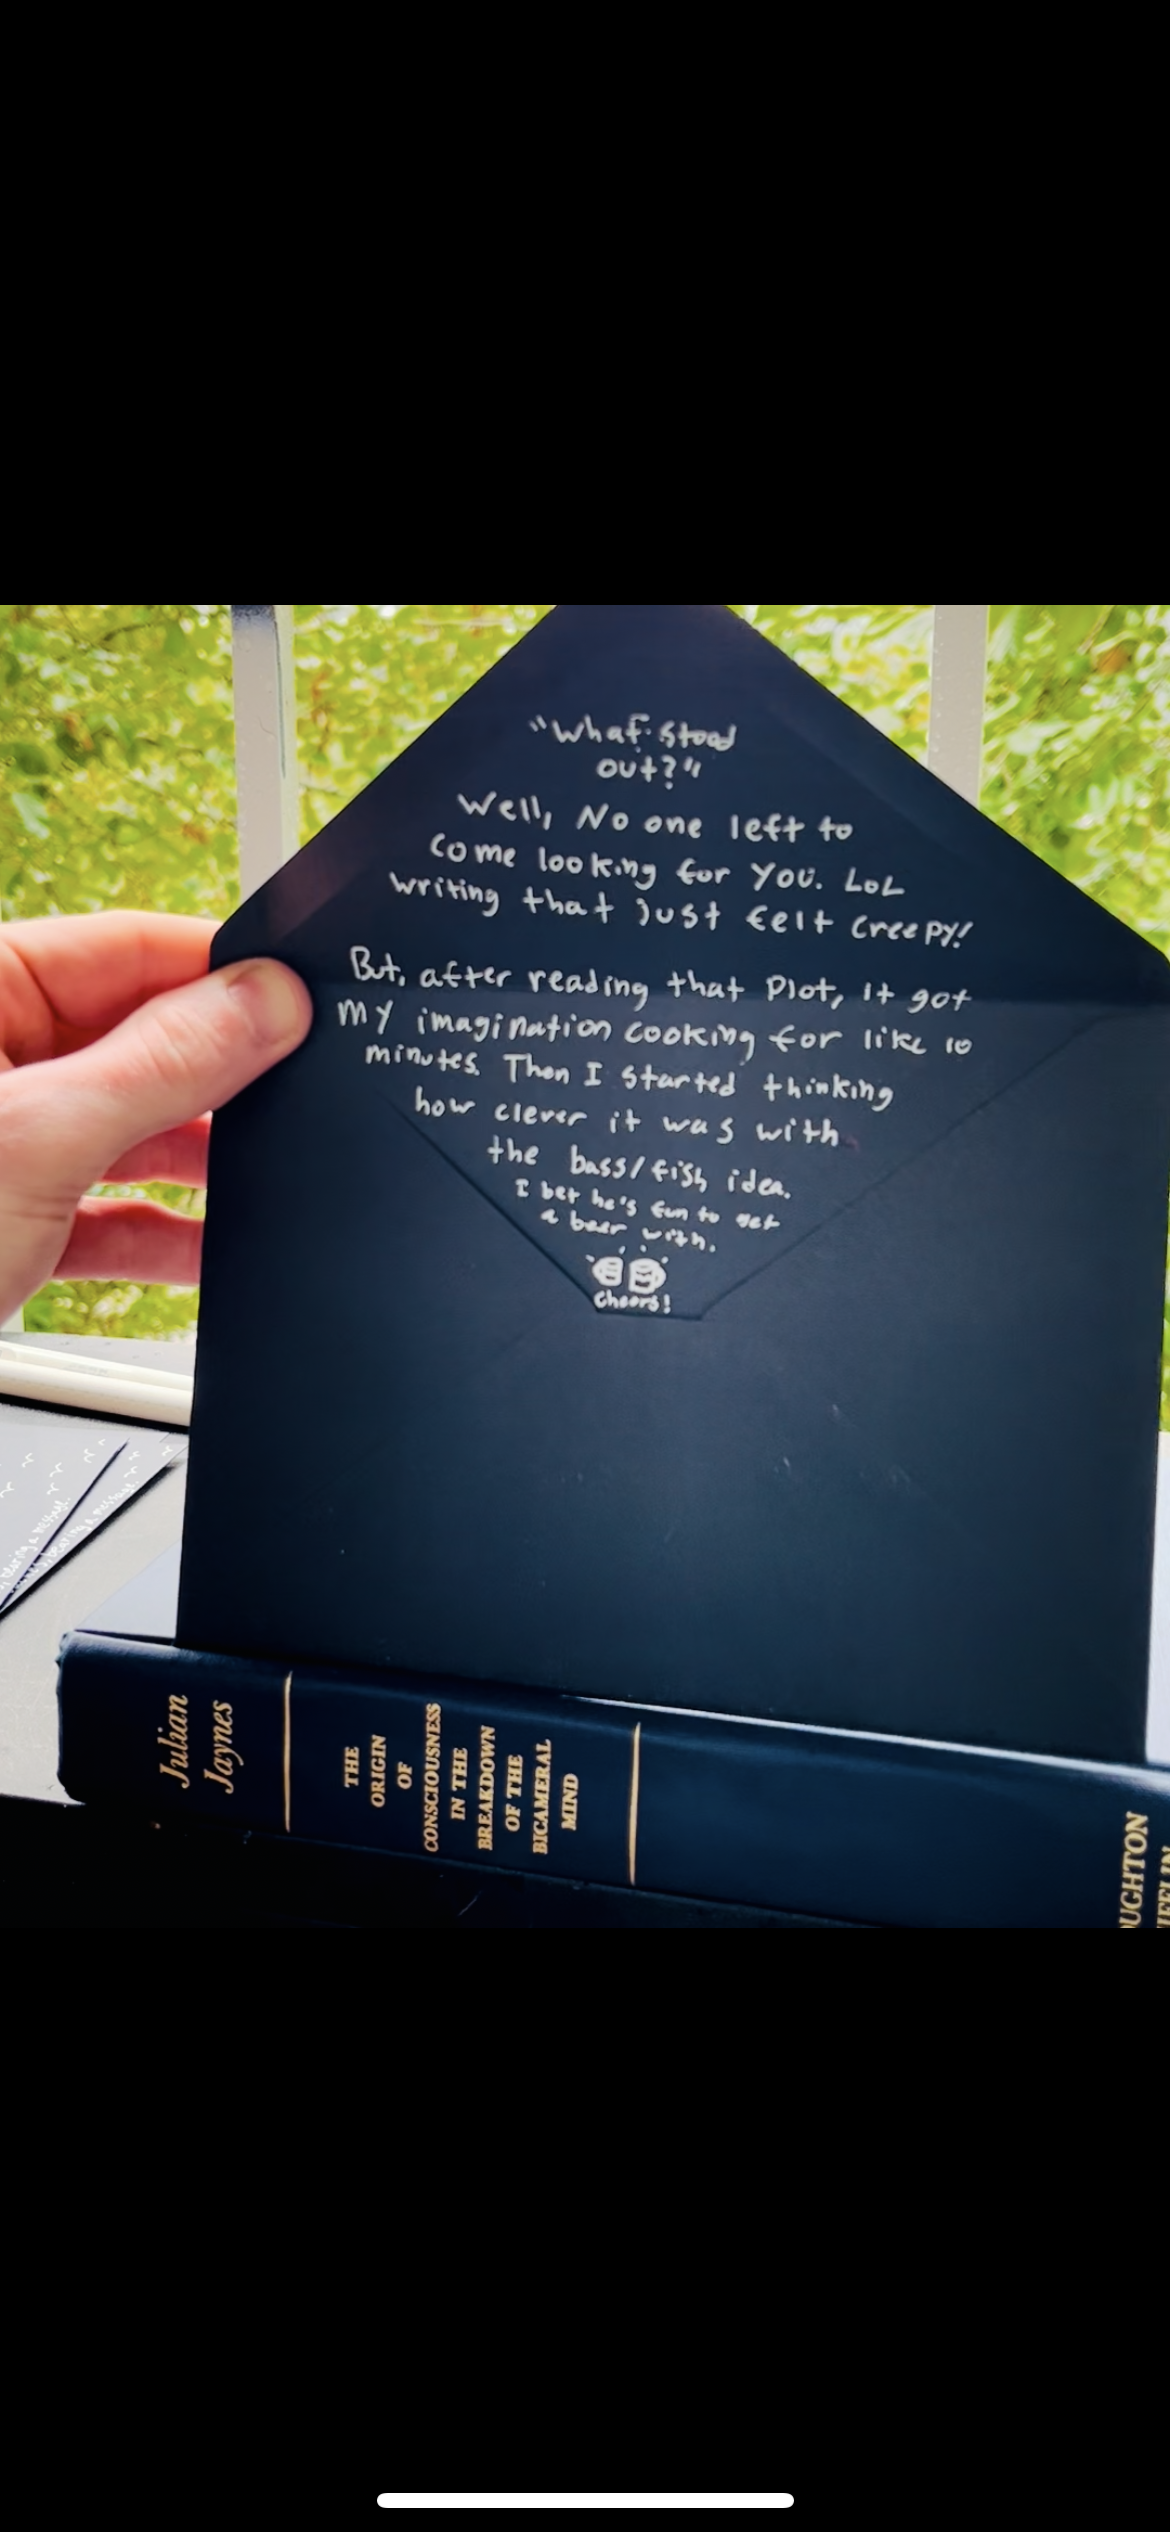 "What stood
out?"
Well, No one left to
come looking for YOU. LOL
writing that just felt creepy!
But, after reading that Plot, it got
MY imagination cooking for like 10
minutes. Then I started thinking
how clever it was with
the bass/fish idea.
I bet he's fun to get
a beer with.
Cheers!
bearing a message.
Julian
Jaynes
THE
ORIGIN
OF
CONSCIOUSNESS
IN THE
BREAKDOWN
OF THE
BICAMERAL
MIND